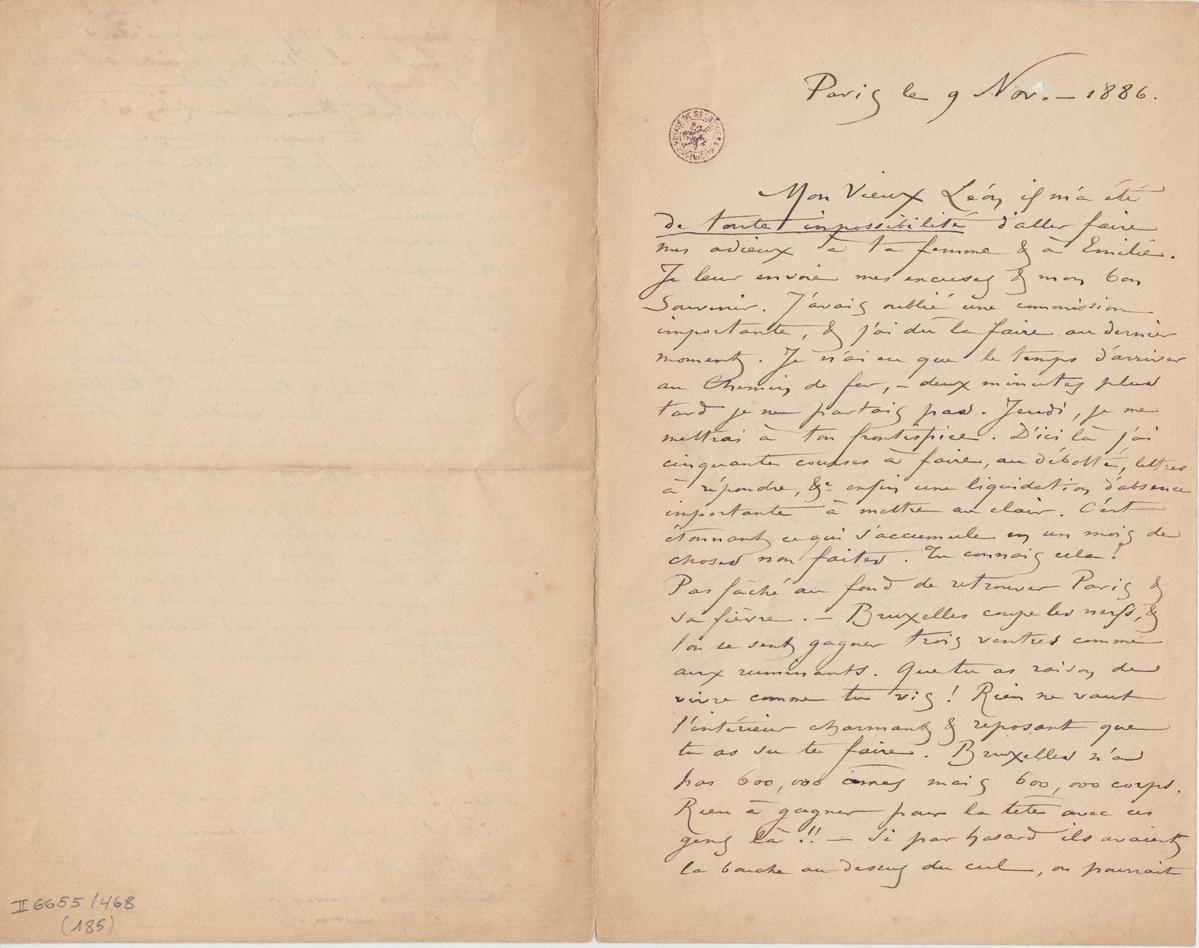 Paris le 9 Nov. – 1886.
Mon Vieux Léon il m'a été
de toute impossibilité d'aller faire
mes adieux à ta femme & à Emilie.
Je leur envoie mes excuses & mon bon
Souvenir. J'avais oublié une commission
importante, & j'ai dû la faire au dernier
moment. Je n'ai eu que le temps d'arriver
au Chemin de fer, – deux minutes plus
tard je ne partais pas. Jeudi, je me
mettrai à ton frontispice. D'ici là j'ai
cinquante courses à faire, au débotté, lettres
à répondre, &c enfin une liquidation d'absence
importante à mettre au clair. C'est
étonnant ce qui s'accumule en un mois de
choses non faites. Tu connais cela!
Pas fâché au fond de retrouver Paris &
sa fièvre. – Bruxelles coupe les nerfs, &
l'on se sent gagner trois ventres comme
aux ruminants. Que tu as raison de
vivre comme tu vis! Rien ne vaut
l'intérieur charmant & reposant que
tu as su te faire. Bruxelles n'a
pas 600,000 âmes mais 600,000 corps.
Rien à gagner pour la tête avec ces
gens là!! – Si par hasard ils avaient
la bouche au dessus du cul, on pourrait
II 6655/468
(185)